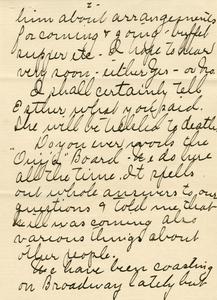 2
him about arrangements
for coming & going - buffet
supper etc - I hope to hear
very soon - either yes - or no.
I shall certainly tell
Esther what you said.
She will be tickled to death.
Do you ever work the
"Ouija" Board - We do here
all the time. It spells
out whole answers to our
questions & told me that
was coming also
various things about
other people.
We have been coasting
on Broadway lately but